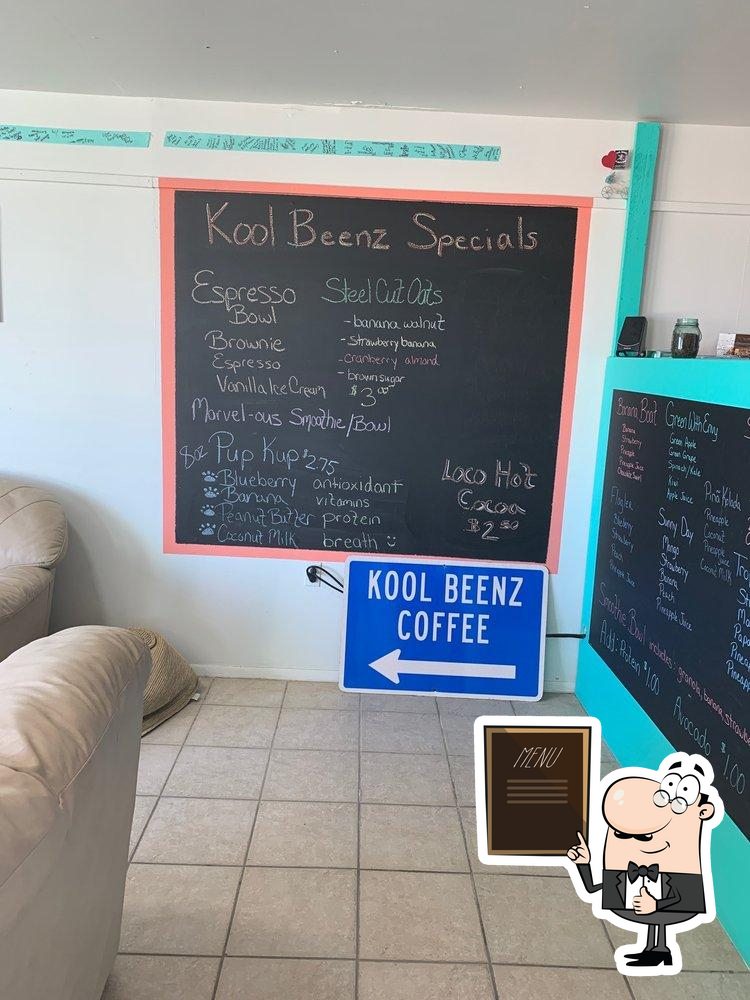 Kool Beenz Specials
Espresso
Bowl
Brownie
Espresso
Vanilla Ice Cream
Steel Cut Oats
- banana walnut
- strawberry banana
- cranberry almond
- brown sugar
$3.00
Marvel-ous Smoothie/Bowl
8oz Pup Kup $2.75
Blueberry antioxidant
Banana vitamins
Peanut Butter protein
Coconut Milk breath
Loco Hot
Cocoa
$2.50
KOOL BEENZ
COFFEE
Banana Boat
Banana
Strawberry
Pineapple
Pineapple Juice
Green With Envy
Green Apple
Green Grape
Spinach/Kale
Kiwi
Apple Juice
Piña Kolada
Pineapple
Coconut
Pineapple Juice
Coconut Milk
Blueberry
Strawberry
Peach
Pineapple Juice
Sunny Day
Mango
Strawberry
Banana
Peach
Pineapple Juice
Smoothie Bowl includes: granola, banana, strawbe
Add: Protein $1.00
Avocado $1.00
MENU